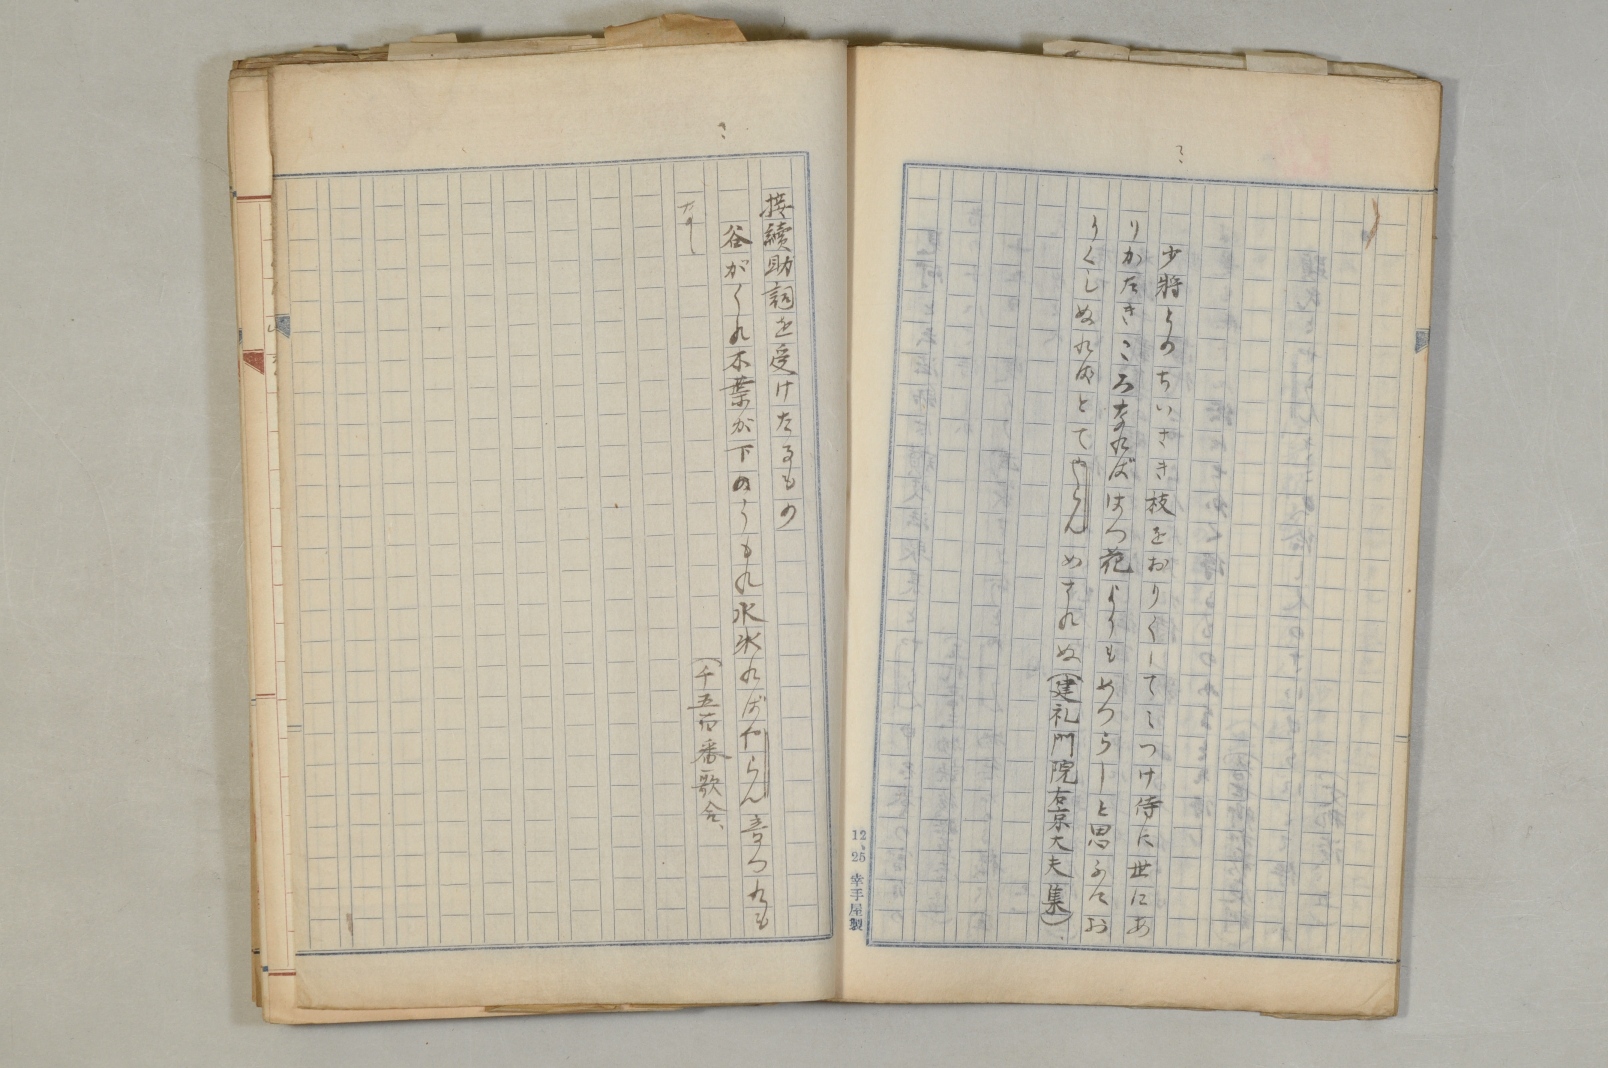 少將とのちいさき枝をおりくしてこつけ侍に世にあ
りかたきころなればはつ花よりもめつらしと思ふにお
りくしぬればとてやらんめされぬ(建礼門院右京大夫集)
12、25 幸手屋製
接續助詞を受けたるもの
谷がくれ木葉が下のうもれ水氷ればやらん音つれも
なし
(千五百番歌合、